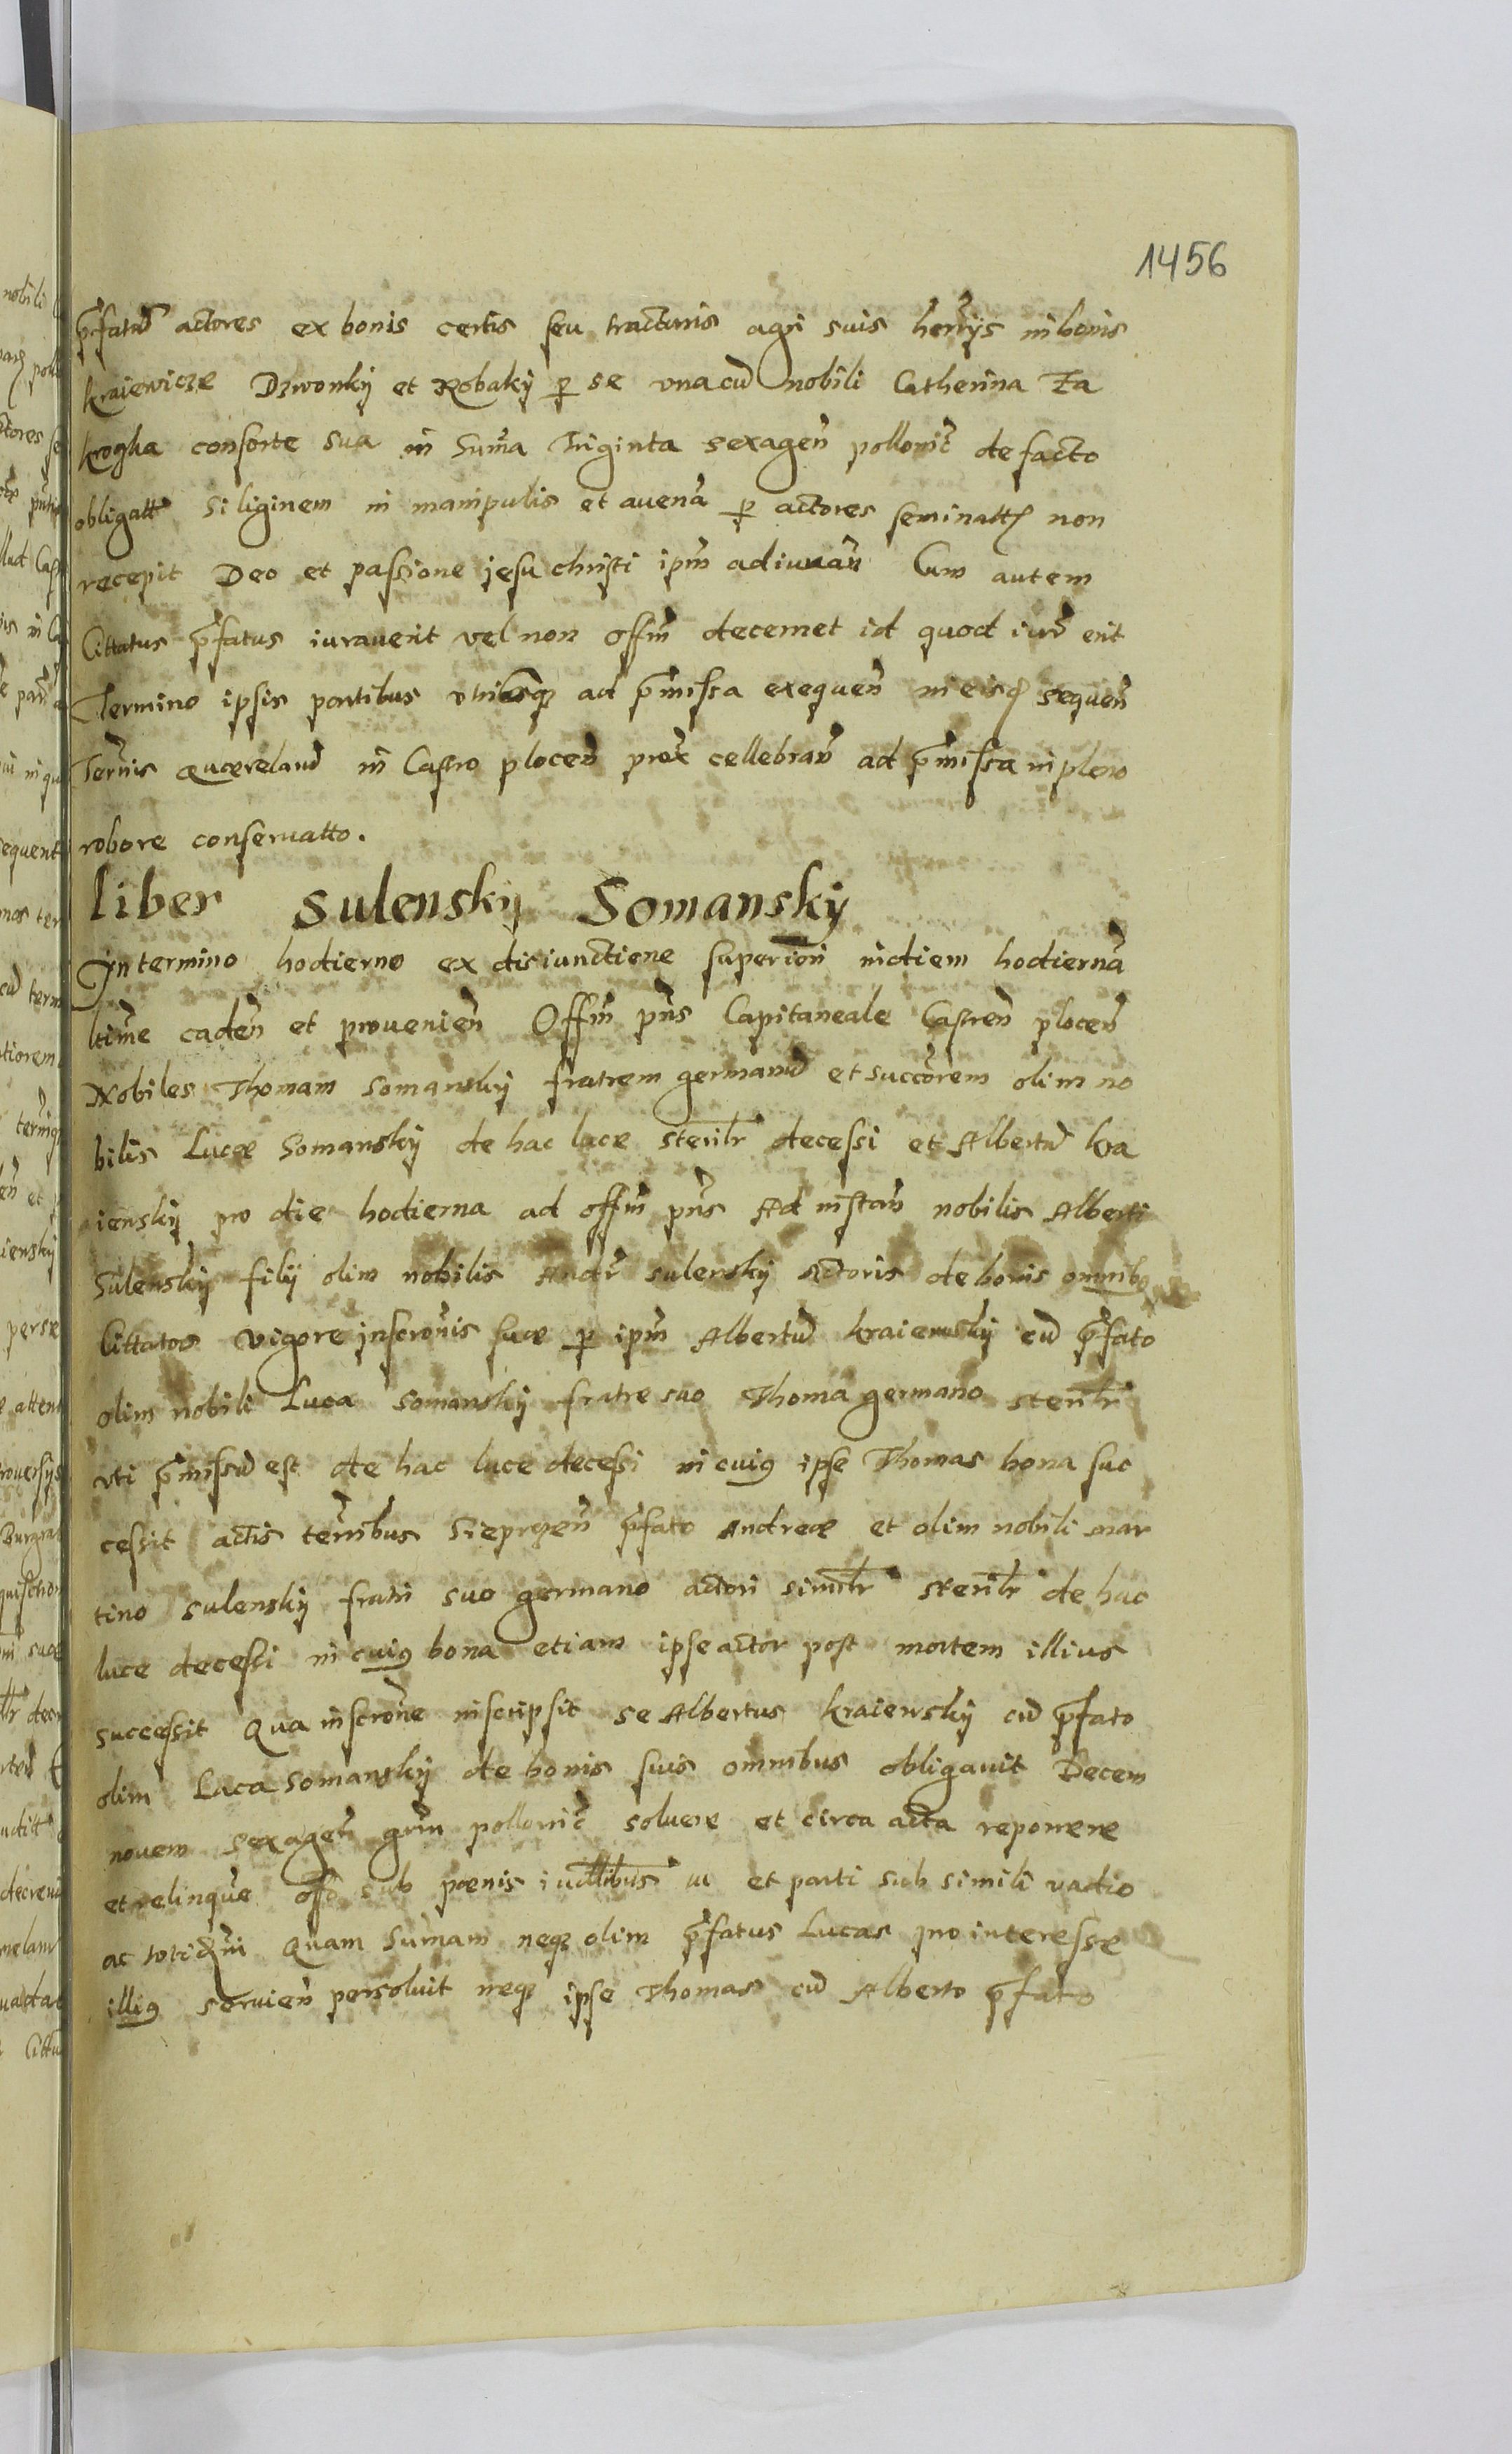 1456
p̄fatū actores ex bonis certis seu tracturis agri suis hern̄ys in bonis
kraiewicze Dzwonky et Robaky p se vnacū nobili Catherina Za
krogha consorte sua in Sum̄a Triginta sexagen̄ pollonic̄ de facto
obligatt Siliginem in manipulis et auenā p actores seminattꝭ non
recepit Deo et passione jesu christi ipm̄ adiuuan̄ Cum autem
Cittatus p̄fatus iurauerit vel non Offm̄ decernet id quod iur̄ erit
Termino ipsis partibus vtrisqꝫ ad p̄missa exequen̄ in eisdꝭ sequen̄
Term̄is quęreland̄ in Castro plocen̄ prox cellebran̄ ad p̄missa in pleno
robore conseruatto.
liber Sulensky Somansky
In termino hodierno ex disiunctione superiori in diem hodiernā
ltime caden̄ et prouenien̄ Offm̄ pn̄s Capitaneale Castren̄ plocen̄
Nobiles Thomam Somansky fratrem germanū et succorem olim no
bilis Lucæ Somansky de hac luce sterilr decessi et Albertū kra
iensky pro die hodierna ad offm̄ pn̄s Ad instan̄ nobilis Alberti
Sulensky filÿ olim nobilis Andr̄ sulensky Actoris de bonis omnibꝯ
Cittatos vigore inscron̄is suæ p ipm̄ Albertū kraiewsky cū p̄fato
olim nobili Luca Somansky fratre suo Thoma germano sterilr
vti p̄missū est de hac luce decessi in cuiꝯ ipse Thomas bona suc
cessit actis terr̄ibus Sieprcen̄ p̄fato Andreæ et olim nobili mar
tino sulensky fratri suo germano actori similr sterilr de hac
luce decessi in cuiꝯ bona etiam ipse actor post mortem illius
successit Qua inscron̄e inscripsit se Albertus kraiewsky cū p̄fato
olim Luca Somansky de bonis suis omnibus obligauit Decem
nouem sexagen̄ grm̄ pollonic̄ soluere et circa acta reponere
et relinquere offo sub pœnis iudtlibus et parti sub simili vadio
ac toti Quam Sum̄am neqꝫ olim p̄fatus Lucas pro interesse
illiꝯ seruien̄ persoluit neqꝫ ipse Thomas cū Alberto p̄fato